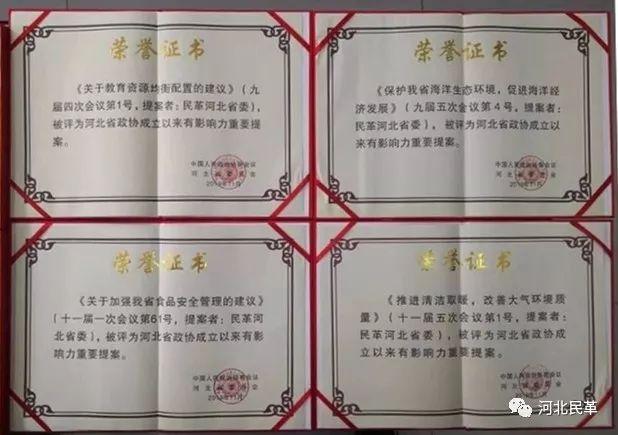 荣誉证书
《关于教育资源均衡配置的建议》（九
届四次会议第1号，提案者：民革河北省委），
被评为河北省政协成立以来有影响力重要提
案。
中国人民政治协商会议
河北省委员会
2019年11月
荣誉证书
《保护我省海洋生态环境，促进海洋经
济发展》（九届五次会议第4号，提案者：
民革河北省委），被评为河北省政协成立以来
有影响力重要提案。
中国人民政治协商会议
河北省委员会
2019年11月
荣誉证书
《关于加强我省食品安全管理的建议》
（十一届一次会议第61号，提案者：民革河
北省委），被评为河北省政协成立以来有影
响力重要提案。
中国人民政治协商会议
河北省委员会
2019年11月
荣誉证书
《推进清洁取暖，改善大气环境质
量》（十一届五次会议第1号，提案者：
民革河北省委），被评为河北省政协成立
以来有影响力重要提案。
中国人民政治协商会议
河北省委员会
2019年11月
河北民革